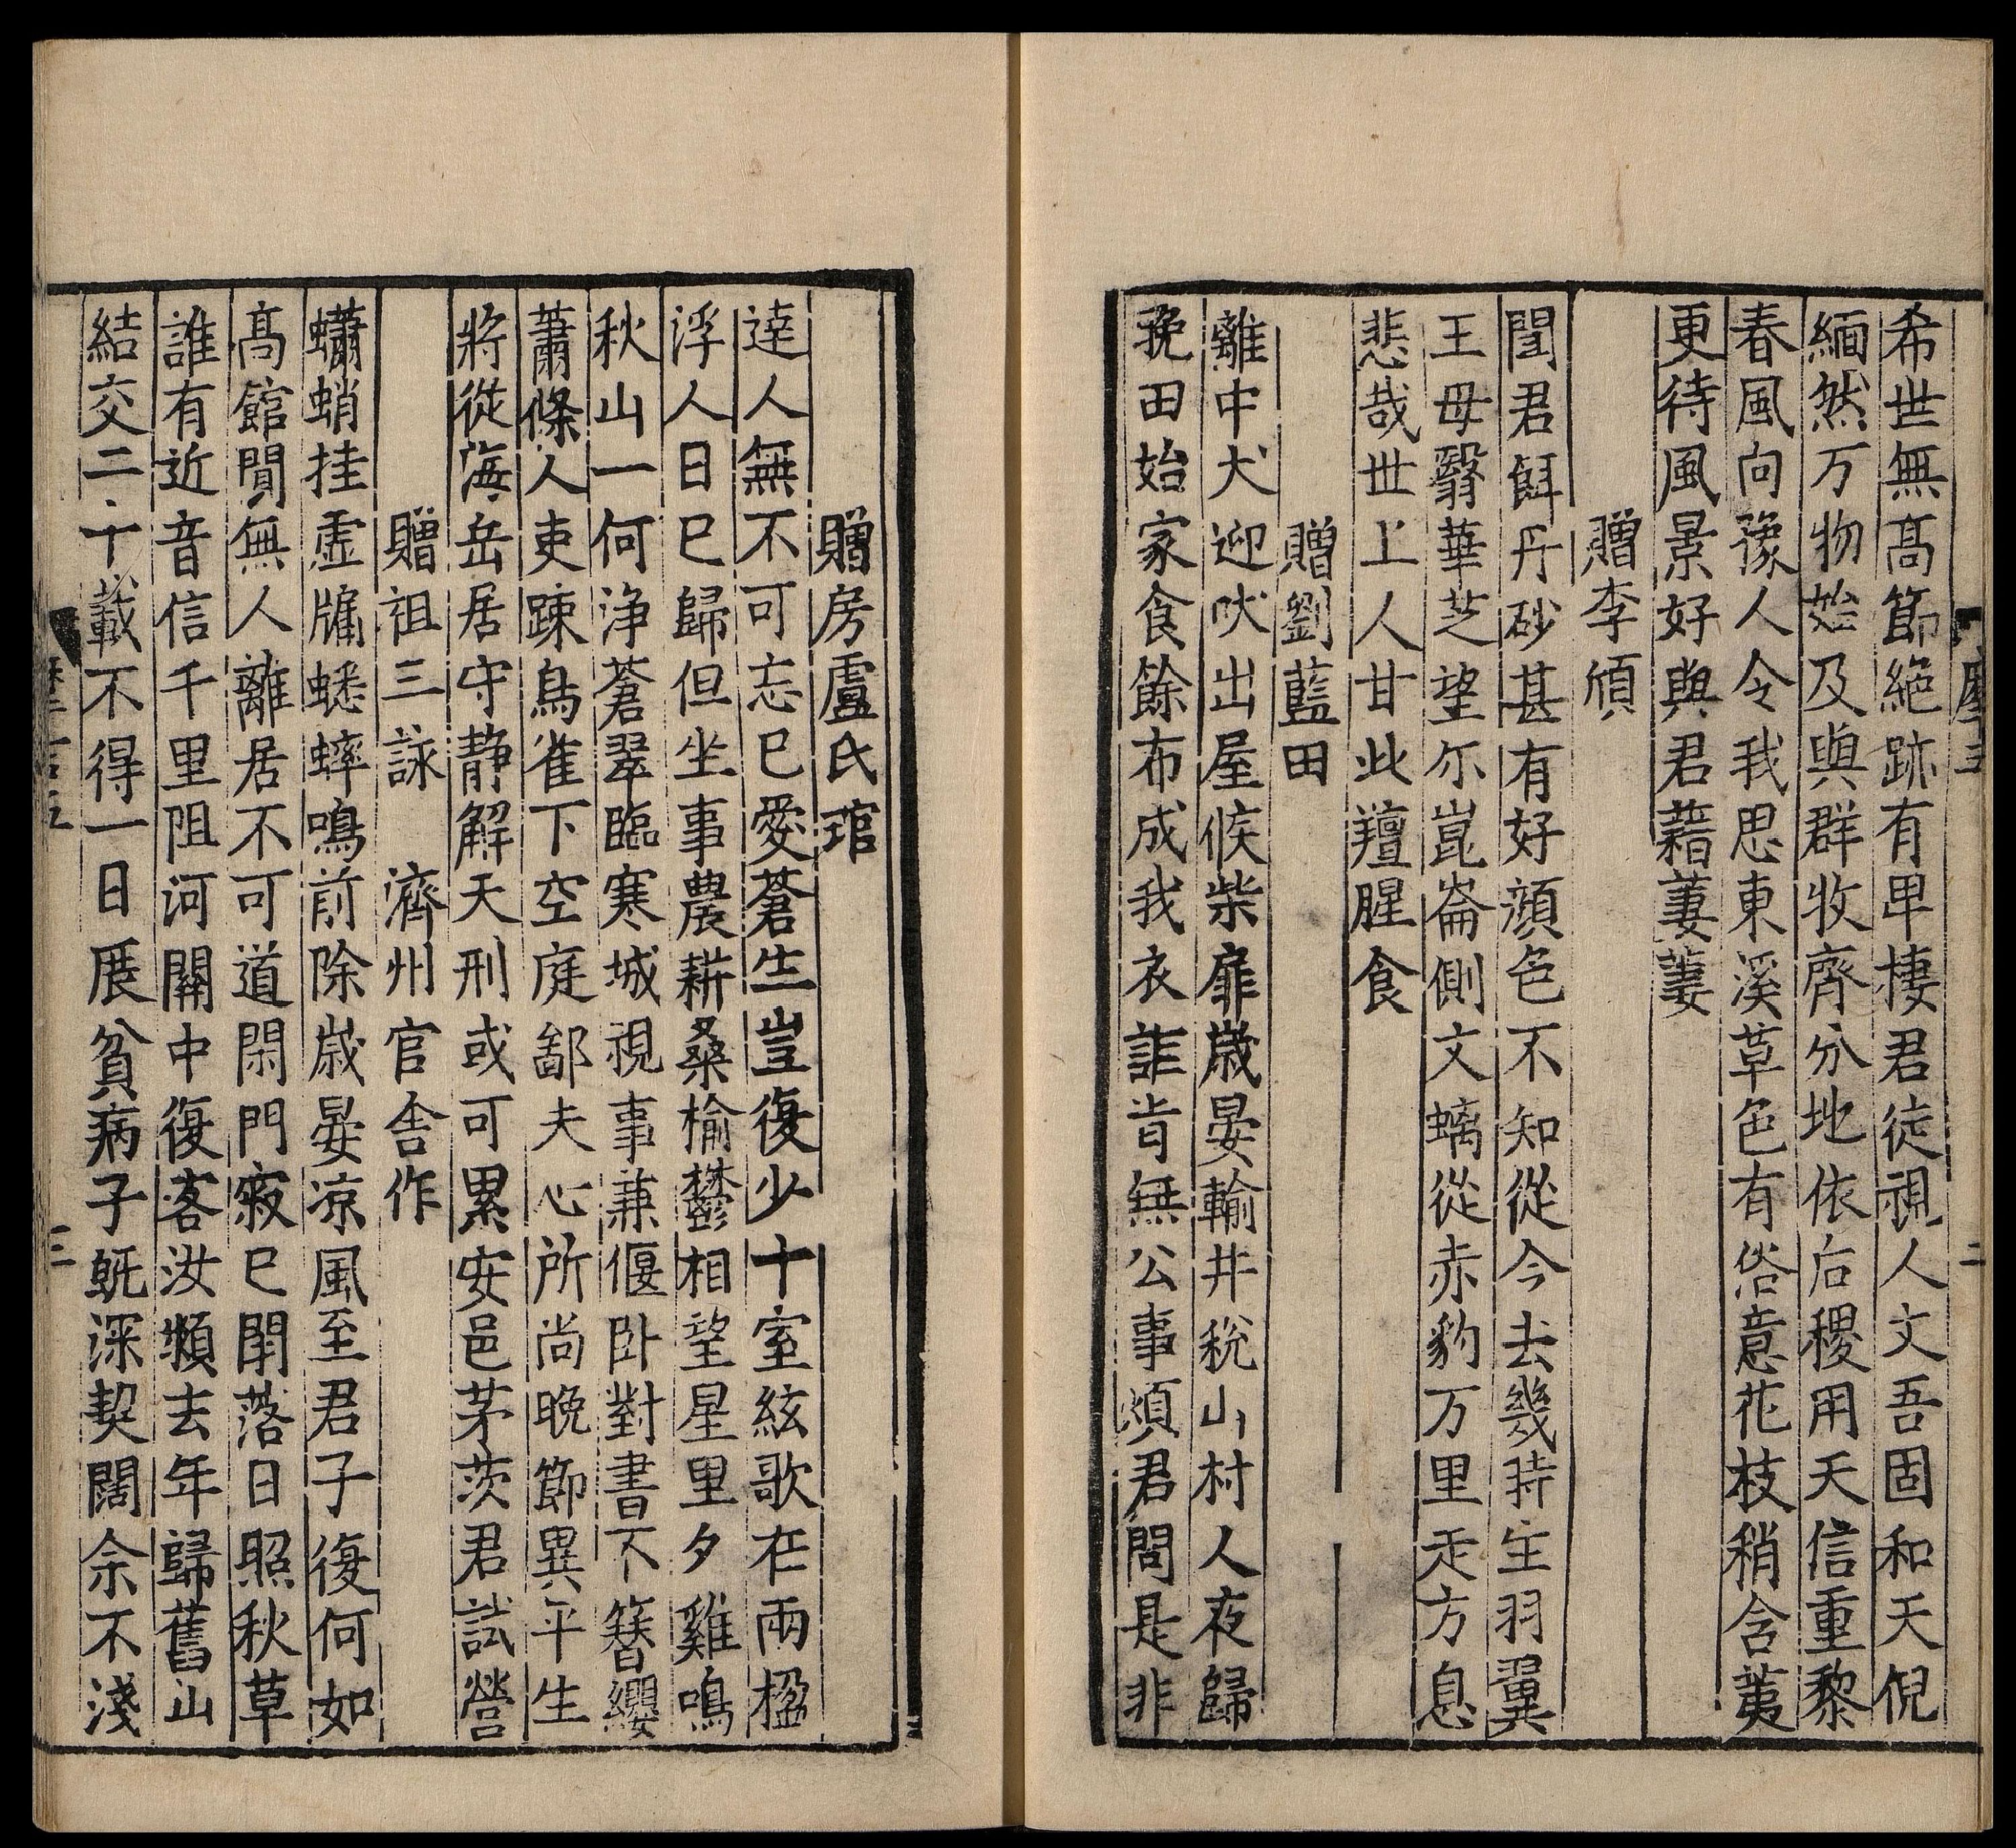 希世無髙節絶跡有卑棲君徒視人文吾固和天倪
緬然万物始及與群牧齊分地依后稷用天信重黎
春風向豫人令我思東溪草色有俗意花枝稍含荑
更待風景好與君藉萋萋
贈李頎
聞君餌丹砂甚有好顔色不知從今去幾時生羽翼
王母翳華芝望尓崑崙側文螭從赤豹万里走方息
悲哉世上人甘此羶腥食
贈劉藍田
離中犬迎吠出屋候柴扉歳晏輸井稅山村人夜歸
晚田始家食餘布成我衣詎肯無公事煩君問是非
贈房盧氏琯
達人無不可忘已愛蒼生豈復少十室絃歌在兩楹
浮人日已歸但坐事農耕桑榆鬱相望星里夕雞鳴
秋山一何浄蒼翠臨寒城視事兼偃卧對書不簪纓
蕭條人吏踈鳥雀下空庭鄙夫心所尚晚節異平生
將從海岳居守静解天刑或可累安邑茅茨君試營
贈祖三詠 濟州官舍作
蠨蛸挂虛牖蟋蟀鳴前除歳晏凉風至君子復何如
髙館閴無人離居不可道閑門寂已閉落日照秋草
誰有近音信千里阻河關中復客汝潁去年歸舊山
結交二十載不得一日展貧病子旣深契闊余不淺